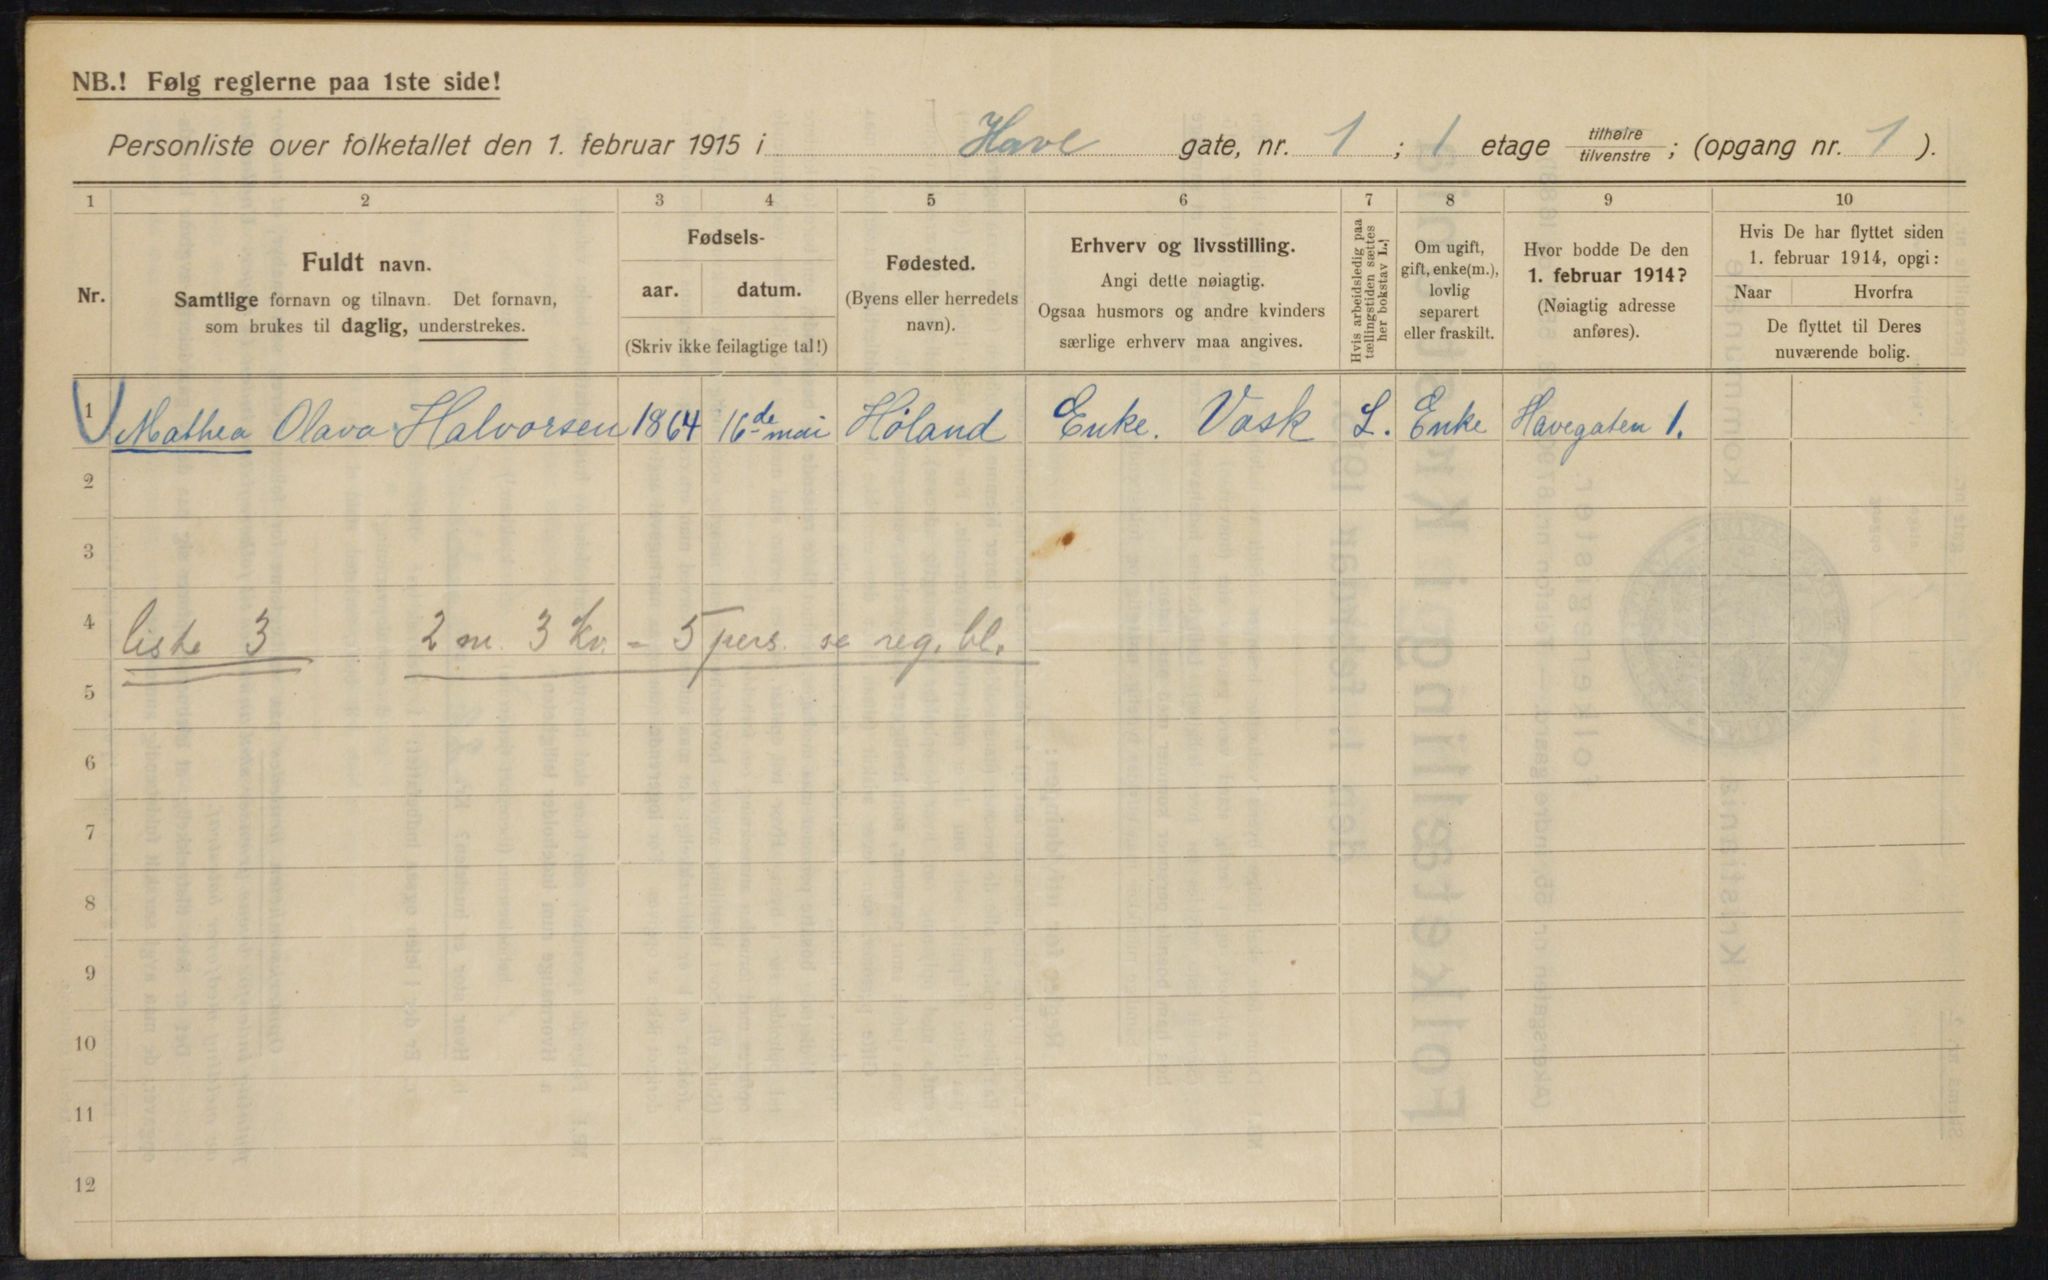 NB.! Følg reglerne paa 1ste side!
Personliste over folketallet den 1. februar 1915 i Have gate, nr. 1 ; 1 etage tilhøire tilvenstre ; (opgang nr. 1 ).
1 2 3 4 5 6 7 8 9 10
Nr.
Fuldt navn.
Samtlige fornavn og tilnavn. Det fornavn,
som brukes til daglig, understrekes.
Fødsels-
aar. datum.
(Skriv ikke feilagtige tal!)
Fødested.
(Byens eller herredets
navn).
Erhverv og livsstilling.
Angi dette nøiagtig.
Ogsaa husmors og andre kvinders
særlige erhverv maa angives.
Hvis arbeidsledig paa
tællingstiden sættes
her bokstav L.!
Om ugift,
gift, enke(m.),
lovlig
separert
eller fraskilt.
Hvor bodde De den
1. februar 1914?
(Nøiagtig adresse
anføres).
Hvis De har flyttet siden
1. februar 1914, opgi:
Naar Hvorfra
De flyttet til Deres
nuværende bolig.
1 Mathea Olava Halvorsen 1864 16de mai Høland Enke. Vask L. Enke Havegaten 1.
2
3
4 liste 3 2 m. 3 kv. = 5 pers. se reg. bl.
5
6
7
8
9
10
11
12